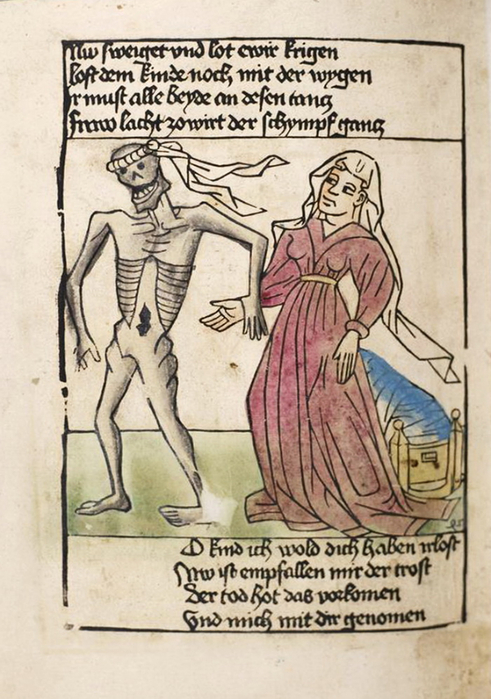 Nw sweiget vnd lot ewir krigen
lost dem kinde noch mit der wygen
Ir must alle beyde an desen tancz
fraw lacht zo wirt der schympf gancz
O kind ich wold dich haben irlost
Nw ist empfallen mir der trost
Der tod hot das vorkomen
Vnd mich mit dir genomen